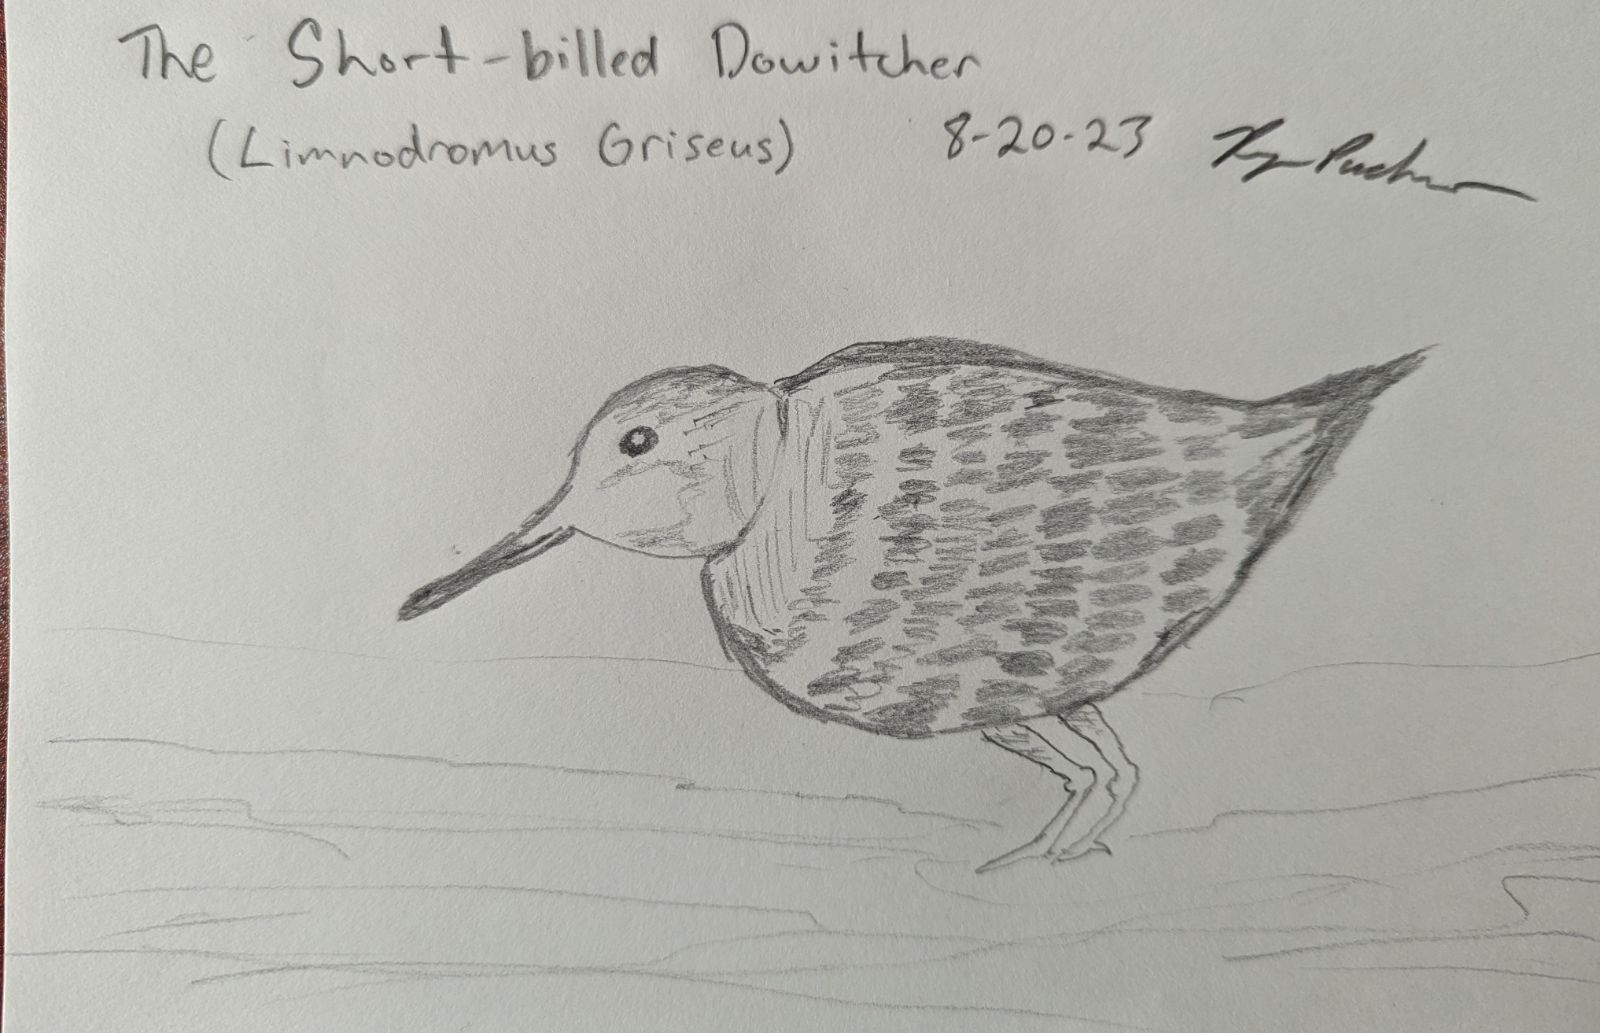 The Short-billed Dowitcher
(Limnodromus Griseus) 8-20-23